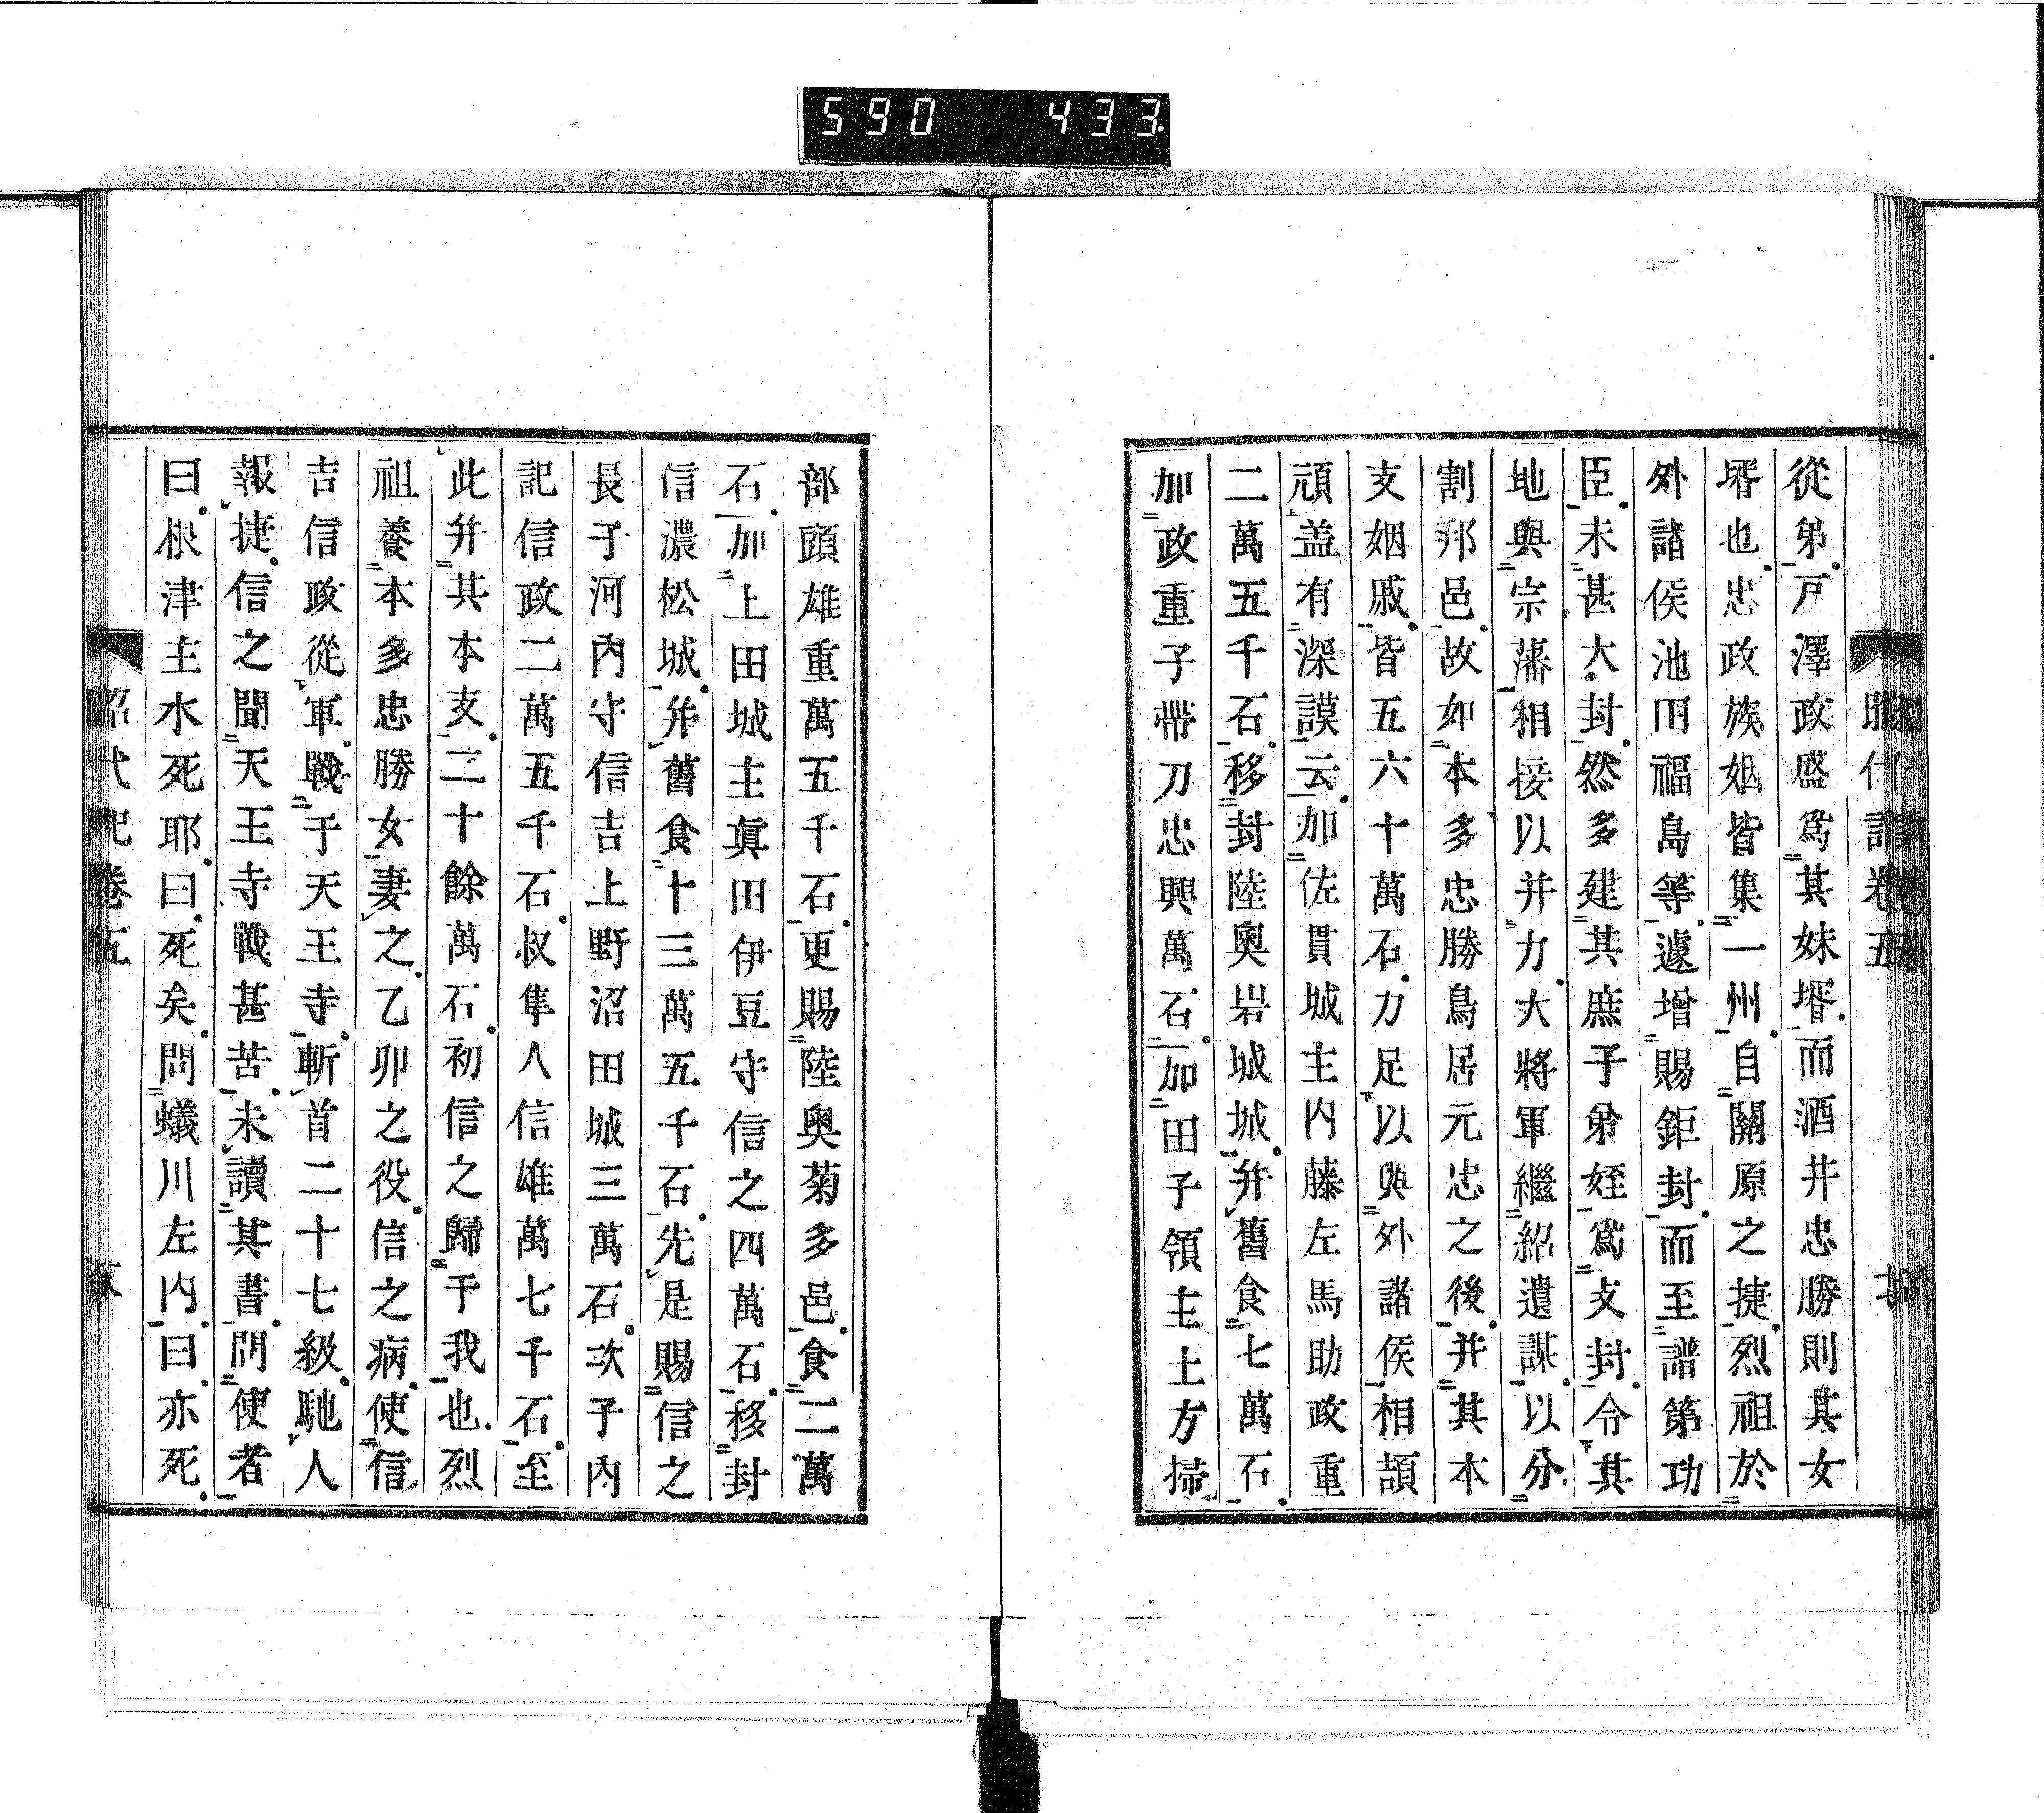 590 433
昭代記卷五
從弟戸澤政盛爲其妹壻而酒井忠勝則其女
壻也忠政族姻皆集一州自關原之捷烈祖於
外諸侯池田福島等遽增賜鉅封而至譜第功
臣未甚大封然多建其庶子弟姪爲攴封令其
地與宗藩相接以并力大將軍繼紹遺謀以分
割邦邑故如本多忠勝鳥居元忠之後并其本
支姻戚皆五六十萬石力足以與外諸侯相頡
頏盖有深謨云加佐貫城主内藤左馬助政重
二萬五千石移封陸奧岩城城并舊食七萬石
加政重子帶刀忠興萬石加田子領主土方掃
部頭雄重萬五千石更賜陸奥菊多邑食二萬
石加上田城主眞田伊豆守信之四萬石移封
信濃松城并舊食十三萬五千石先是賜信之
長子河内守信吉上野沼田城三萬石次子内
記信政二萬五千石叔隼人信雄萬七千石至
此并其本支二十餘萬石初信之歸于我也烈
祖養本多忠勝女妻之乙卯之役信之病使信
吉信政從軍戰于天王寺斬首二十七級馳人
報捷信之聞天王寺戰甚苦未讀其書問使者
曰根津主水死耶曰死矣問蟻川左内曰亦死
昭代記卷五